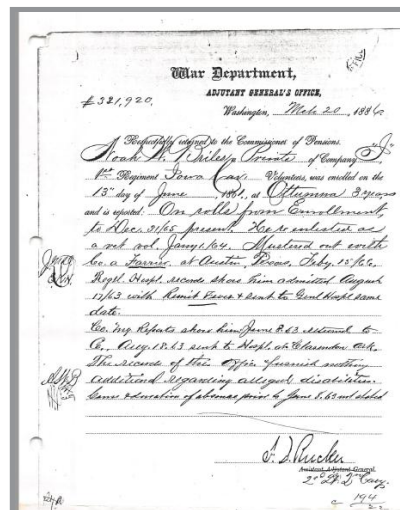 War Department,
ADJUTANT GENERAL'S OFFICE,
#321,920.
Washington, Mch 20, 1886
Respectfully returned to the Commissioner of Pensions.
Noah H. a Private of Company "I"
1st Regiment Iowa Cav. Volunteers, was enrolled on the
13th day of June, 1861, at Ottumwa 3 years
and is reported: On rolls from Enrollment,
to Dec. 31/65 present. He reenlisted as
a vet vol. Jany 1/64. Mustered out with
Co. a Farrier, at Austin, Texas, Feby. 15/66.
Regtl. Hospl. records show him admitted August
17/63 with Remit Fever & sent to Genl Hospl same
date.
Co. Mg. Reports show him June 8.63 returned to
Co. Aug. 18.63 sent to Hospl. at Clarendon Ark.
The records of this office furnish nothing
additional regarding alleged disabilities.
Cause & duration of absence prior to June 8.63 not stated
Assistant Adjutant General.
2d Lt. 2nd Cavy.
194